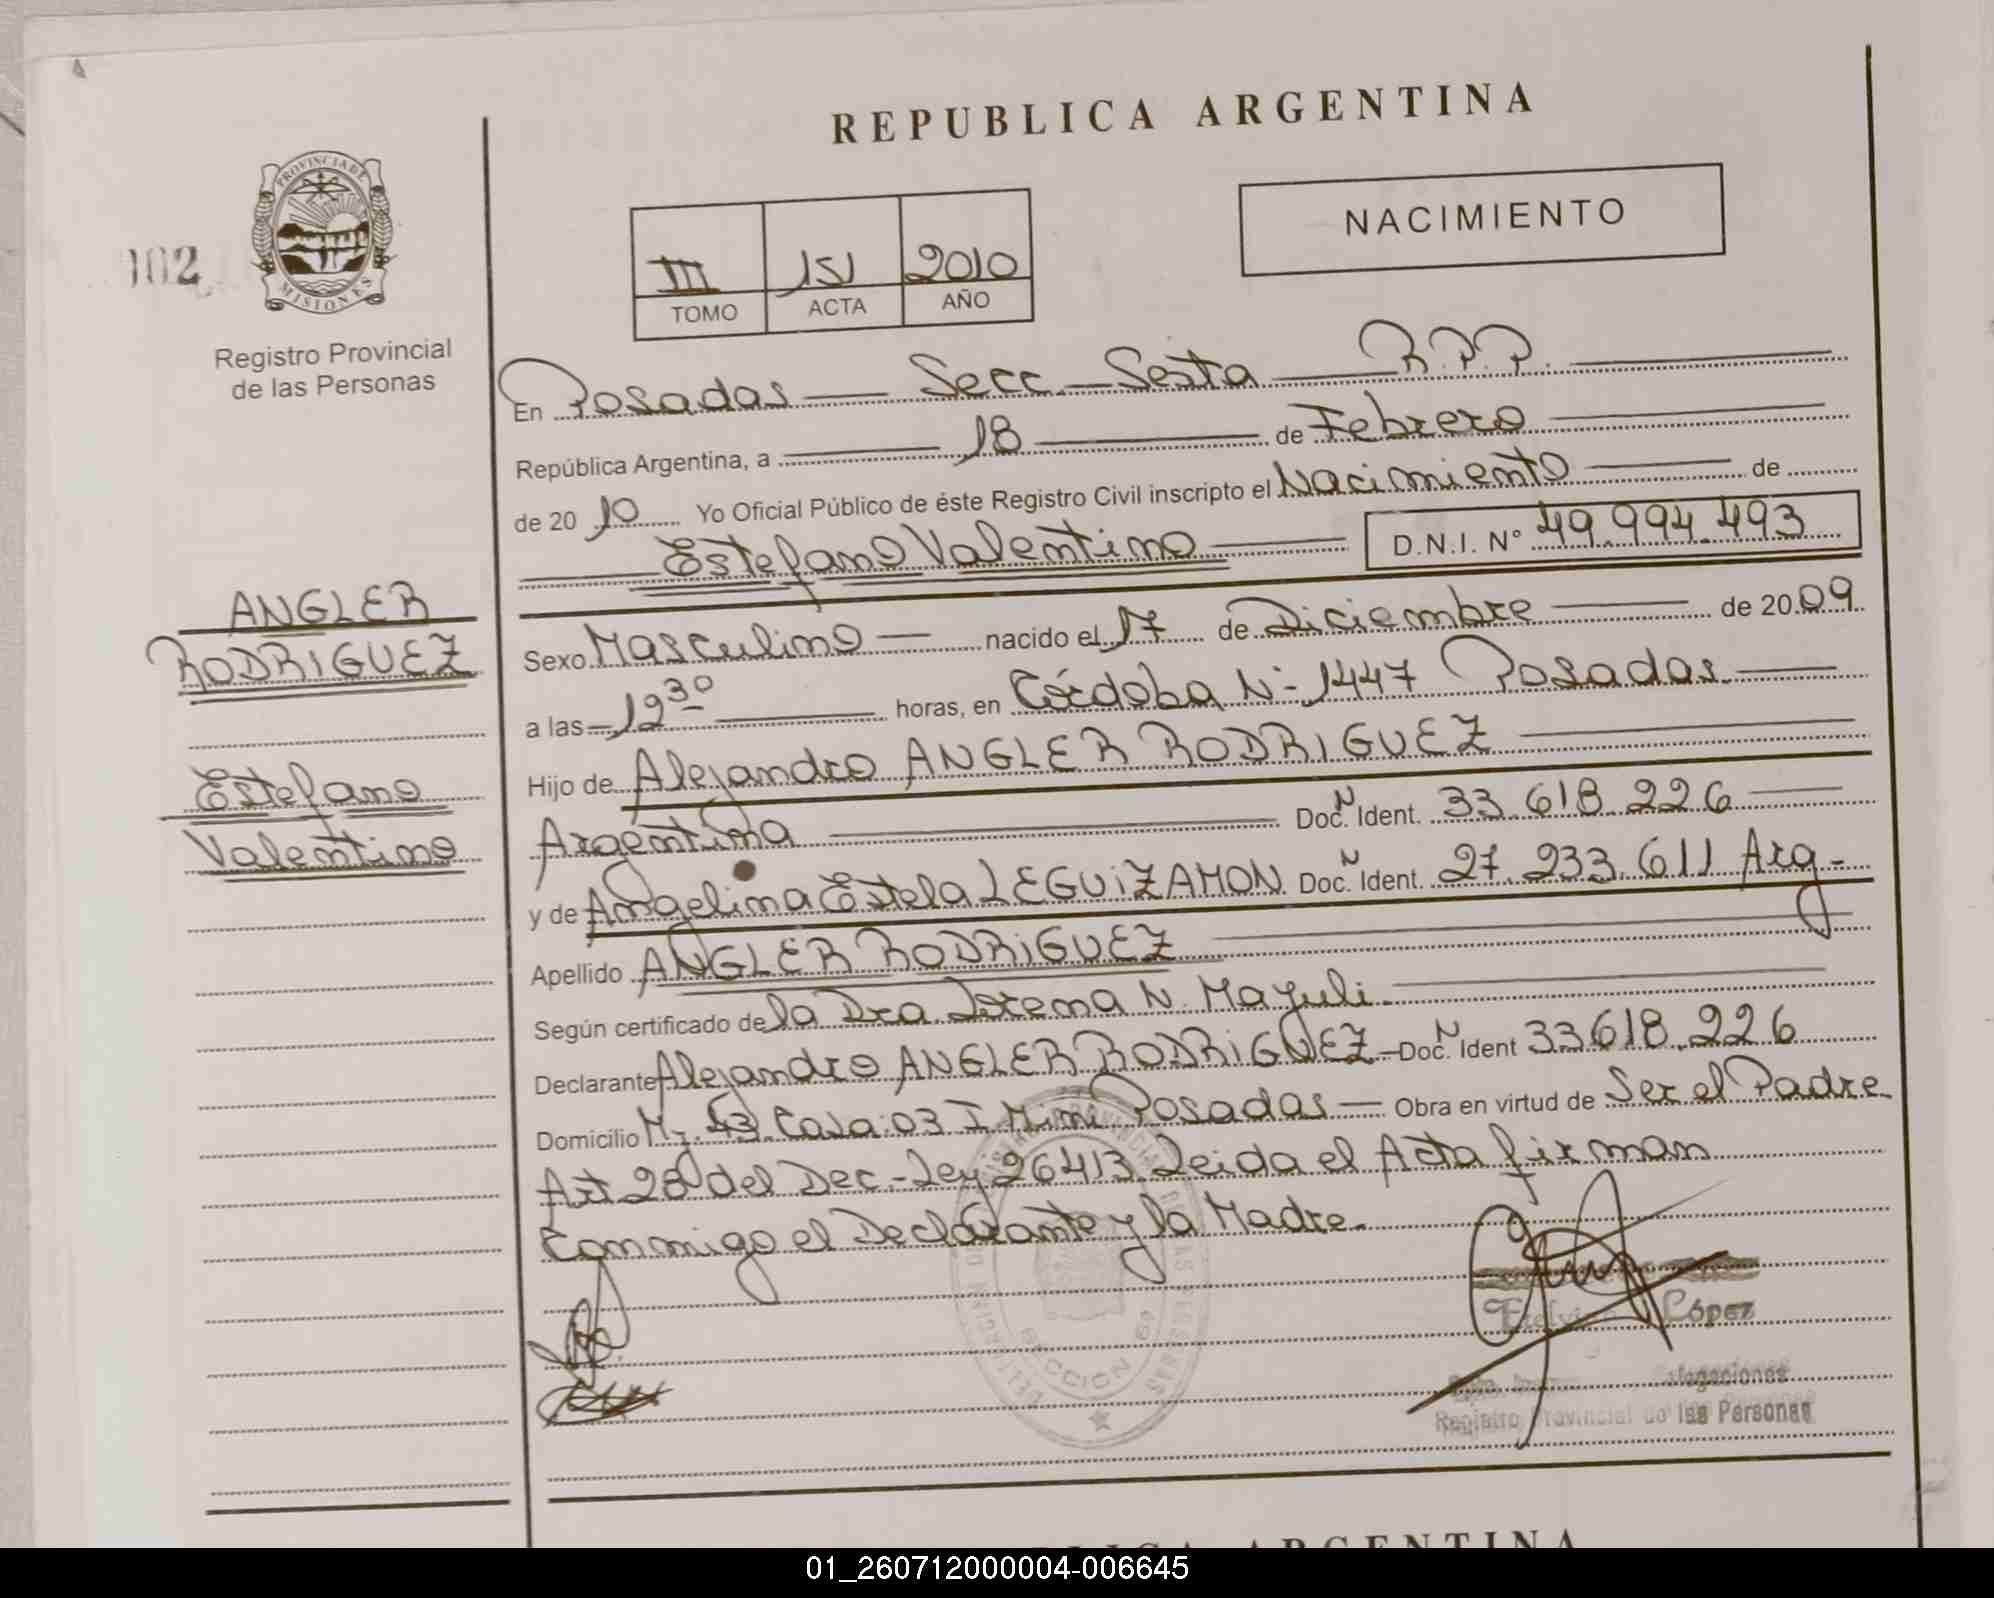 REPUBLICA ARGENTINA
PROVINCIA DE
MISIONES
102
Registro Provincial
de las Personas
III 151 2010
TOMO ACTA AÑO
NACIMIENTO
En Posadas — Secc. — Sexta — R.P.P.
República Argentina, a 18 de Febrero
de 20 10 Yo Oficial Público de éste Registro Civil inscripto el Nacimiento de
Estefano Valentino D.N.I. Nº 49.994.493
ANGLER
RODRIGUEZ
Estefano
Valentino
Sexo Masculino — nacido el 17 de Diciembre de 20 09
a las 12 30 horas, en Córdoba Nº 1447 Posadas.
Hijo de Alejandro ANGLER RODRIGUEZ
Argentina Doc. N Ident. 33.618.226
y de Angelina Estela LEGUIZAMON Doc. N Ident. 27.233.611 Arg-
Apellido ANGLER RODRIGUEZ
Según certificado de la Dra. N.
Declarante Alejandro ANGLER RODRIGUEZ — Doc. N Ident 33.618.226
Domicilio Mz. 43 Casa 03 Posadas — Obra en virtud de Ser el Padre
Art 28 del Dec.-Ley 26413 Leida el Acta firman
Conmigo el Declarante y la Madre.
SECCION 6ª
López
Registro Provincial de las Personas
01_260712000004-006645